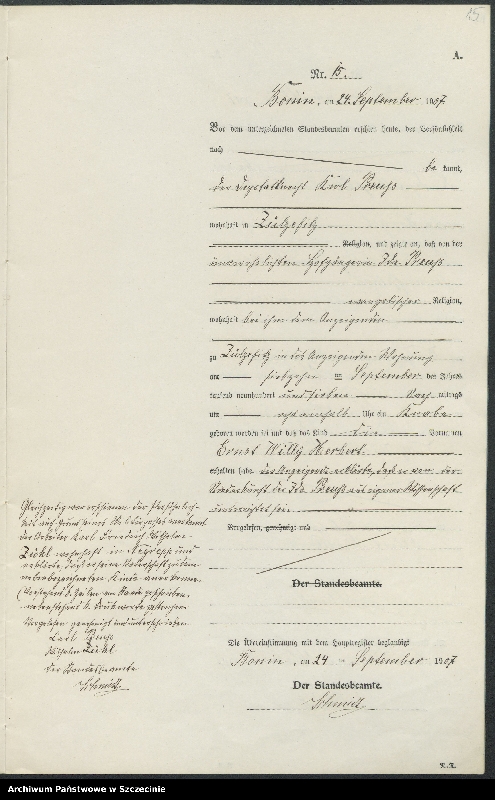 15
A.
Nr. 15.
Bonin, am 24. September 1907
Vor dem unterzeichneten Standesbeamten erschien heute, der Persönlichkeit
nach
be kannt,
der Karl Beuß
wohnhaft in Zülzefitz
Religion, und zeigte an, daß von der
unverehelichten Hofgängerin Ida Beuß
evangelischer Religion,
wohnhaft bei ihm dem Anzeigenden
zu Zülzefitz in des Anzeigenden Wohnung
am siebzehn ten September des Jahres
tausend neunhundert und sieben Nach mittags
um Uhr ein Knabe
geboren worden sei und daß das Kind die Vornamen
Ernst Willy Herbert
erhalten habe. Der Anzeigende erklärte, daß er von der
Niederkunft der Ida Beuß aus eigener Wissenschaft
unterrichtet sei.
Vorgelesen, genehmigt und
Der Standesbeamte.
Gleichzeitig war erschienen der Persönlich-
keit auf Grund seines Militärpasses
der Arbeiter Karl Friedrich Wilhelm
Ziehl wohnhaft in und
erklärte, daß er seine Vaterschaft zu dem
nebenbezeichneten Kinde anerkenne.
Vorgelesen genehmigt und unterschrieben
Carl Beuß
Wilhelm Ziehl
Der Standesbeamte
Schmidt
Die Übereinstimmung mit dem Hauptregister beglaubigt
Bonin, am 24 ten September 1907
Der Standesbeamte.
Schmidt
Archiwum Państwowe w Szczecinie